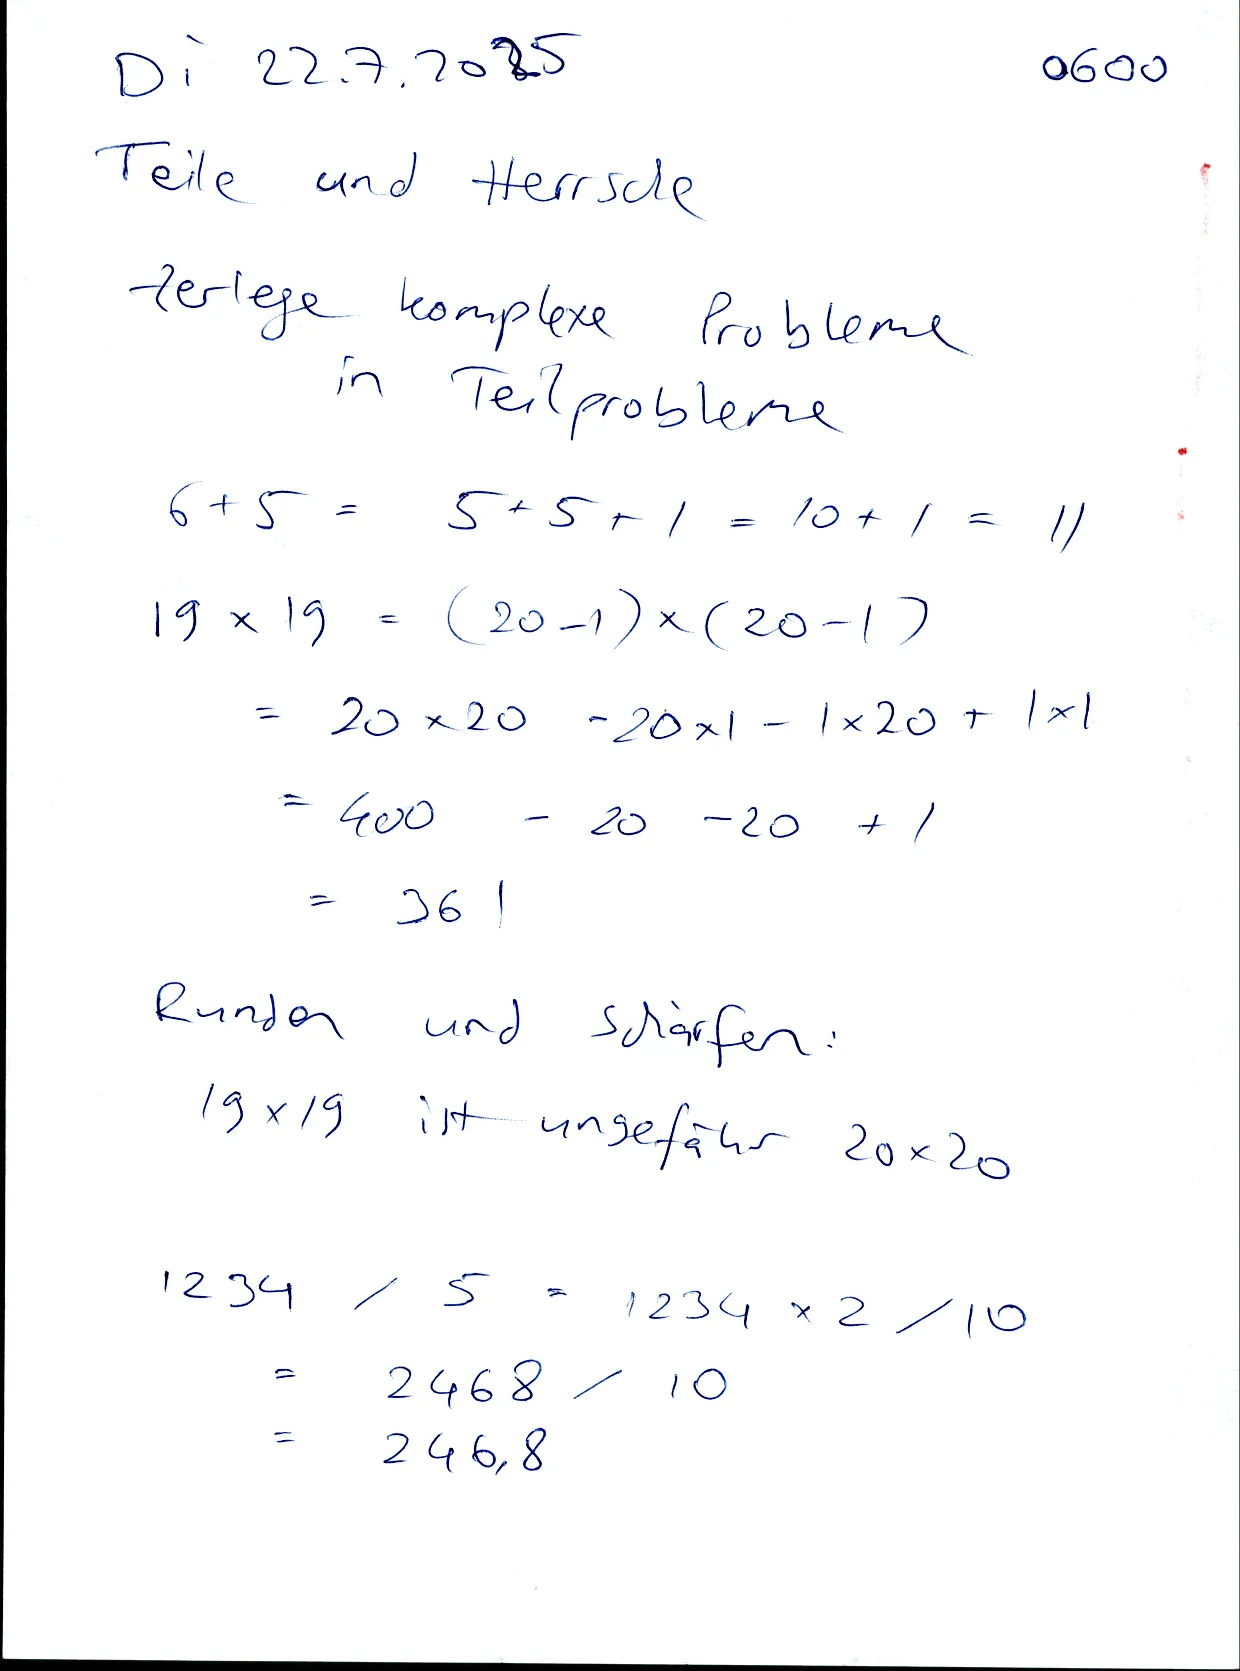 Di 22.7.2025 0600
Teile und Herrsche
zerlege komplexe Probleme
in Teilprobleme
6 + 5 = 5 + 5 + 1 = 10 + 1 = 11
19 x 19 = (20-1) x (20-1)
= 20 x 20 - 20 x 1 - 1 x 20 + 1 x 1
= 400 - 20 - 20 + 1
= 361
Runden und schärfen:
19 x 19 ist ungefähr 20 x 20
1234 / 5 = 1234 x 2 / 10
= 2468 / 10
= 246,8